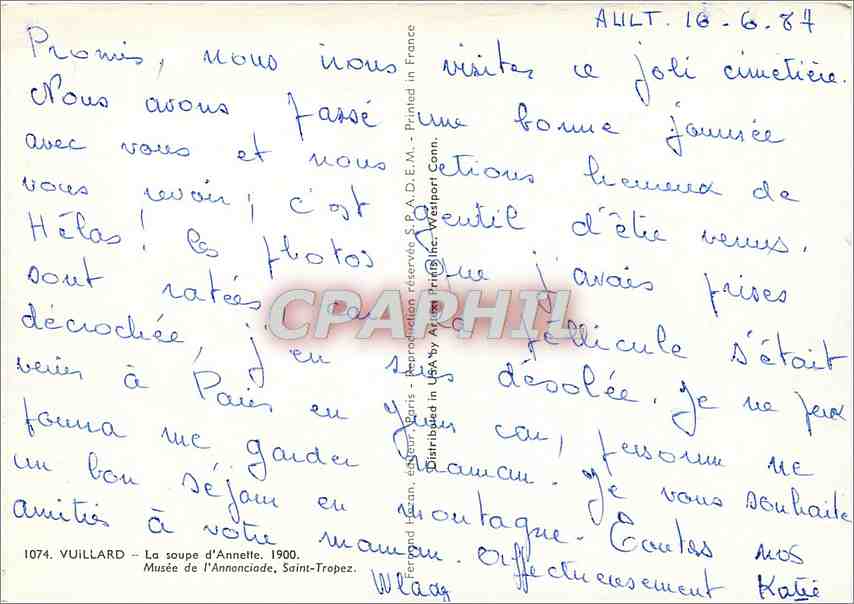 AULT. 16-6.87
Promis, nous irons visiter ce joli cimetière.
Nous avons passé une bonne journée
avec vous et nous étions heureux de
vous revoir, c'est gentil d'être venus.
Hélas! les photos que j'avais prises
sont ratées, car la pellicule s'était
décrochée, j'en suis désolée. Je ne peux
venir à Paris en juin car, personne ne
pourra me garder maman. Je vous souhaite
un bon séjour en montagne. Toutes nos
amitiés à votre maman. Affectueusement Katie
CPAPHIL
1074. VUILLARD - La soupe d'Annette. 1900.
Musée de l'Annonciade, Saint-Tropez.
Fernand Hazan, éditeur, Paris - Reproduction réservée S.P.A.D.E.M. - Printed in France
Distributed in USA by Artext Prints Inc. Westport Conn.